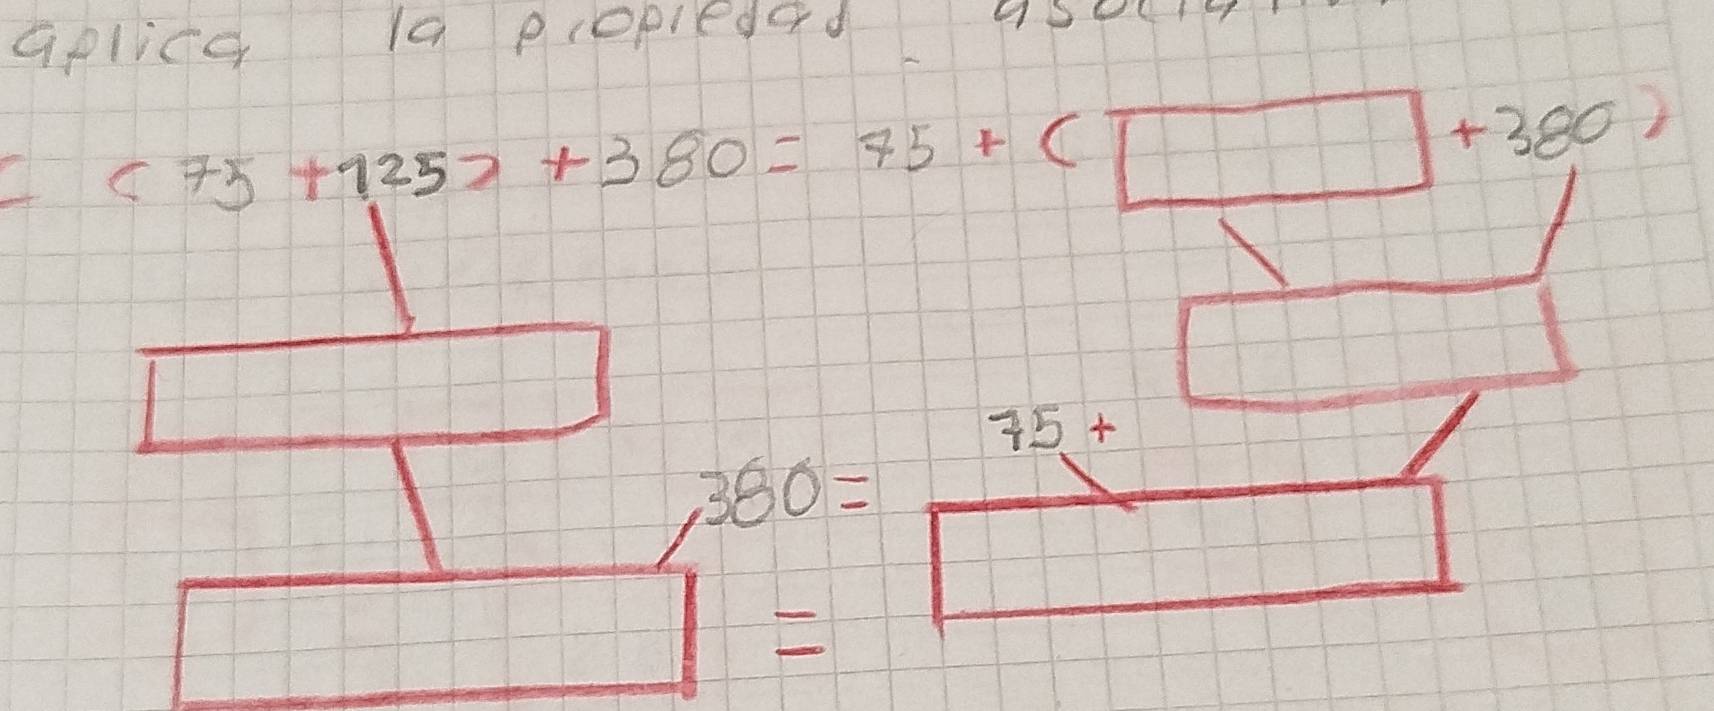 aplica la propiedad
( 75 + 125 ) + 380 = 75 + ( + 380 )
75 +
380 =
=